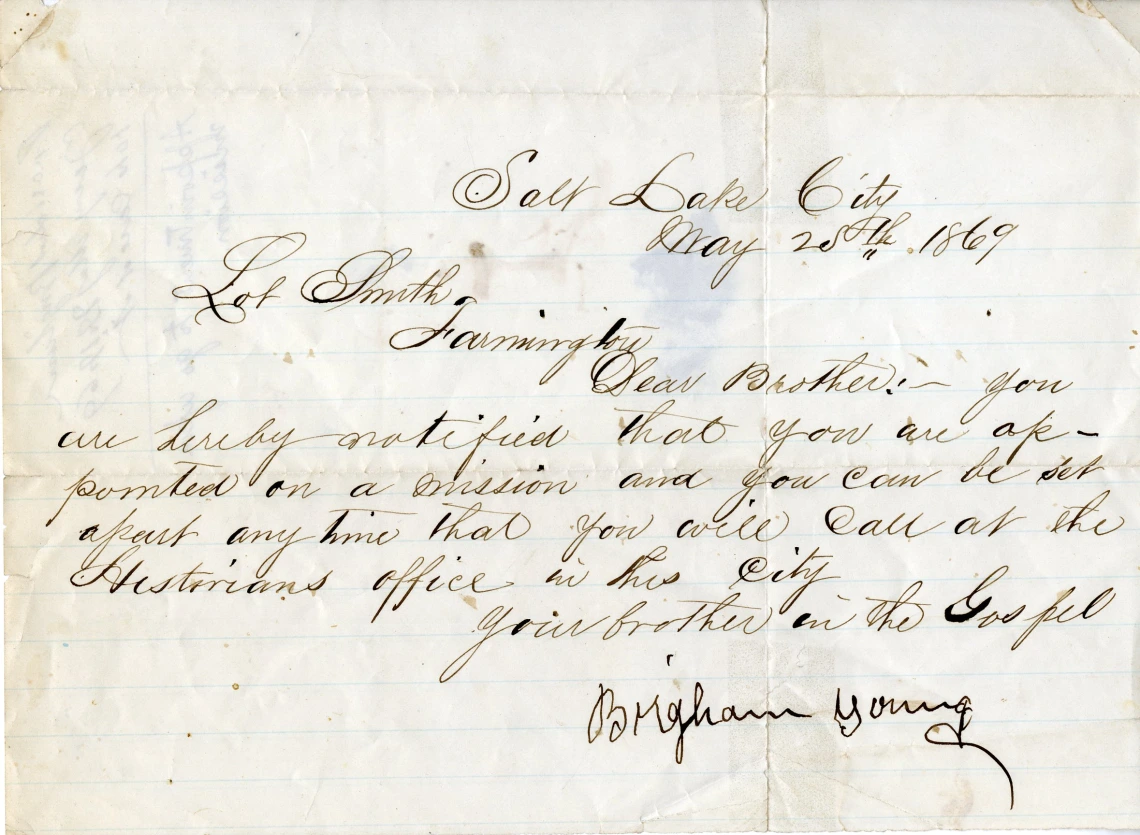 Salt Lake City
May 25th 1869
Lot Smith
Farmington
Dear Brother:— you
are hereby notified that you are ap-
pointed on a mission and you can be set
apart any time that you will Call at the
Historians office in this City
your brother in the Gospel
Brigham Young